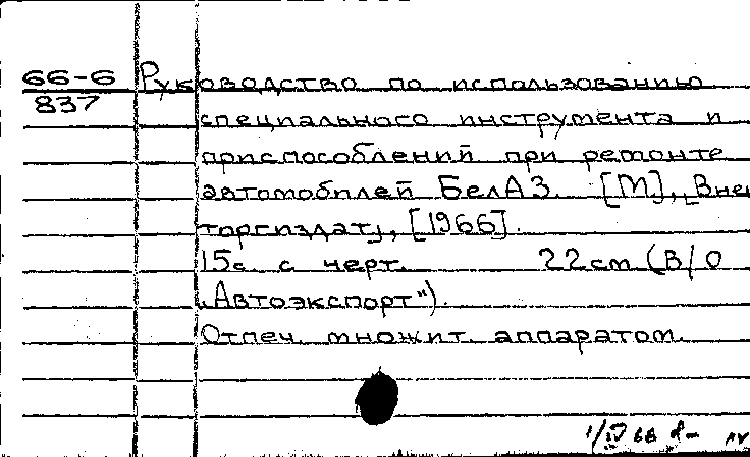 66-6 Руководство по использованию
837
специального инструмента и
приспособлений при ремонте
автомобилей БелАЗ. [М], [Вне
торгиздат], [1966].
15с. с черт. 22см (В/О
"Автоэкспорт").
Отпеч. множит. аппаратом.
1/IV 66